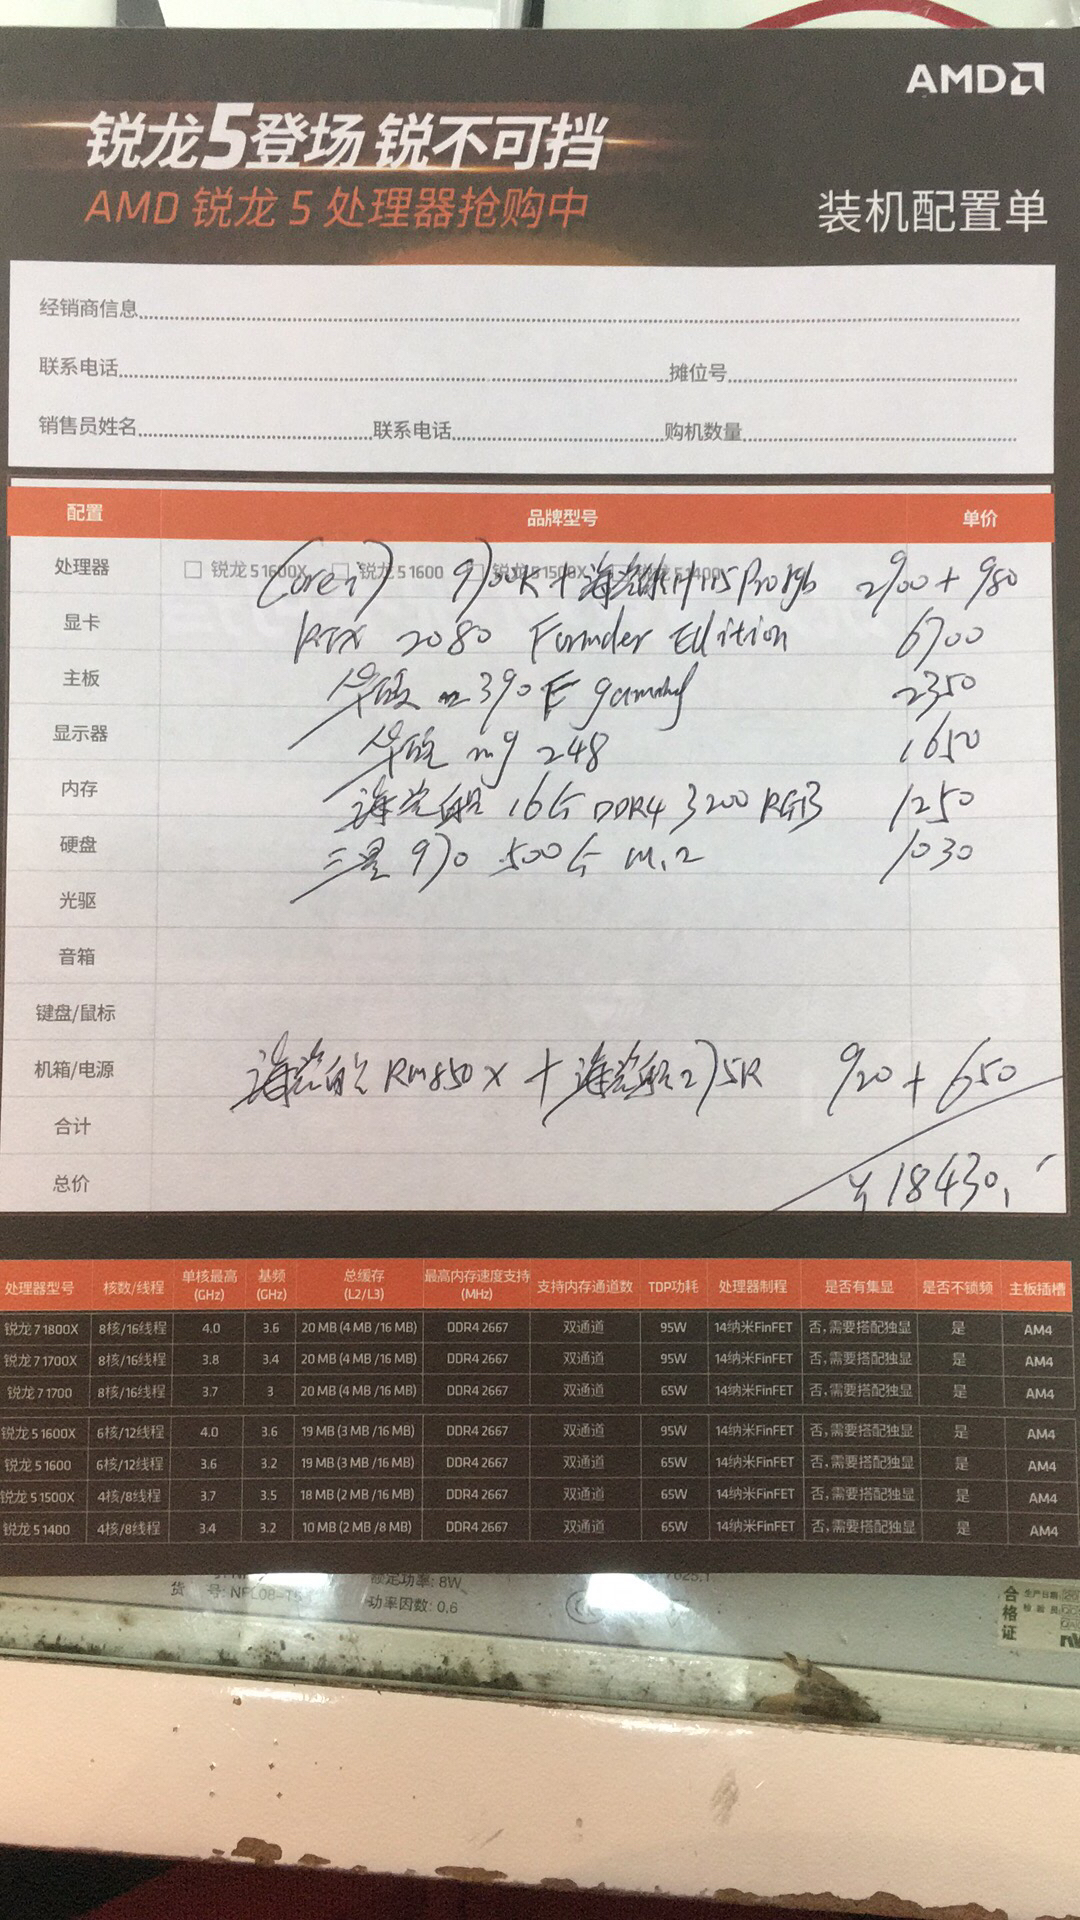 AMD
锐龙5登场 锐不可挡
AMD 锐龙 5 处理器抢购中
装机配置单
经销商信息
联系电话 摊位号
销售员姓名 联系电话 购机数量
配置 品牌型号 单价
处理器 □ 锐龙 5 1600X □ 锐龙 5 1600 锐龙 5 1500X 1400
Core i7 9700K + 海盗船 H115 Pro rgb 2900 + 980
显卡 RTX 2080 Founder Edition 6700
主板 华硕 z390 E gaming 2350
显示器 华硕 mg 248 1650
内存 海盗船 16G DDR4 3200 RGB 1250
硬盘 三星 970 500G M.2 1030
光驱
音箱
键盘/鼠标
机箱/电源 海盗船 RM850X + 海盗船 275R 920 + 650
合计
总价 ¥18430
处理器型号 核数/线程 单核最高(GHz) 基频(GHz) 总缓存(L2/L3) 最高内存速度支持(MHz) 支持内存通道数 TDP功耗 处理器制程 是否有集显 是否不锁频 主板插槽
锐龙 7 1800X 8核/16线程 4.0 3.6 20 MB (4 MB /16 MB) DDR4 2667 双通道 95W 14纳米FinFET 否,需要搭配独显 是 AM4
锐龙 7 1700X 8核/16线程 3.8 3.4 20 MB (4 MB /16 MB) DDR4 2667 双通道 95W 14纳米FinFET 否,需要搭配独显 是 AM4
锐龙 7 1700 8核/16线程 3.7 3 20 MB (4 MB /16 MB) DDR4 2667 双通道 65W 14纳米FinFET 否,需要搭配独显 是 AM4
锐龙 5 1600X 6核/12线程 4.0 3.6 19 MB (3 MB /16 MB) DDR4 2667 双通道 95W 14纳米FinFET 否,需要搭配独显 是 AM4
锐龙 5 1600 6核/12线程 3.6 3.2 19 MB (3 MB /16 MB) DDR4 2667 双通道 65W 14纳米FinFET 否,需要搭配独显 是 AM4
锐龙 5 1500X 4核/8线程 3.7 3.5 18 MB (2 MB /16 MB) DDR4 2667 双通道 65W 14纳米FinFET 否,需要搭配独显 是 AM4
锐龙 5 1400 4核/8线程 3.4 3.2 10 MB (2 MB /8 MB) DDR4 2667 双通道 65W 14纳米FinFET 否,需要搭配独显 是 AM4
货 号: 额定功率: 8W
功率因数: 0.6
合格证
生产日期
检验员